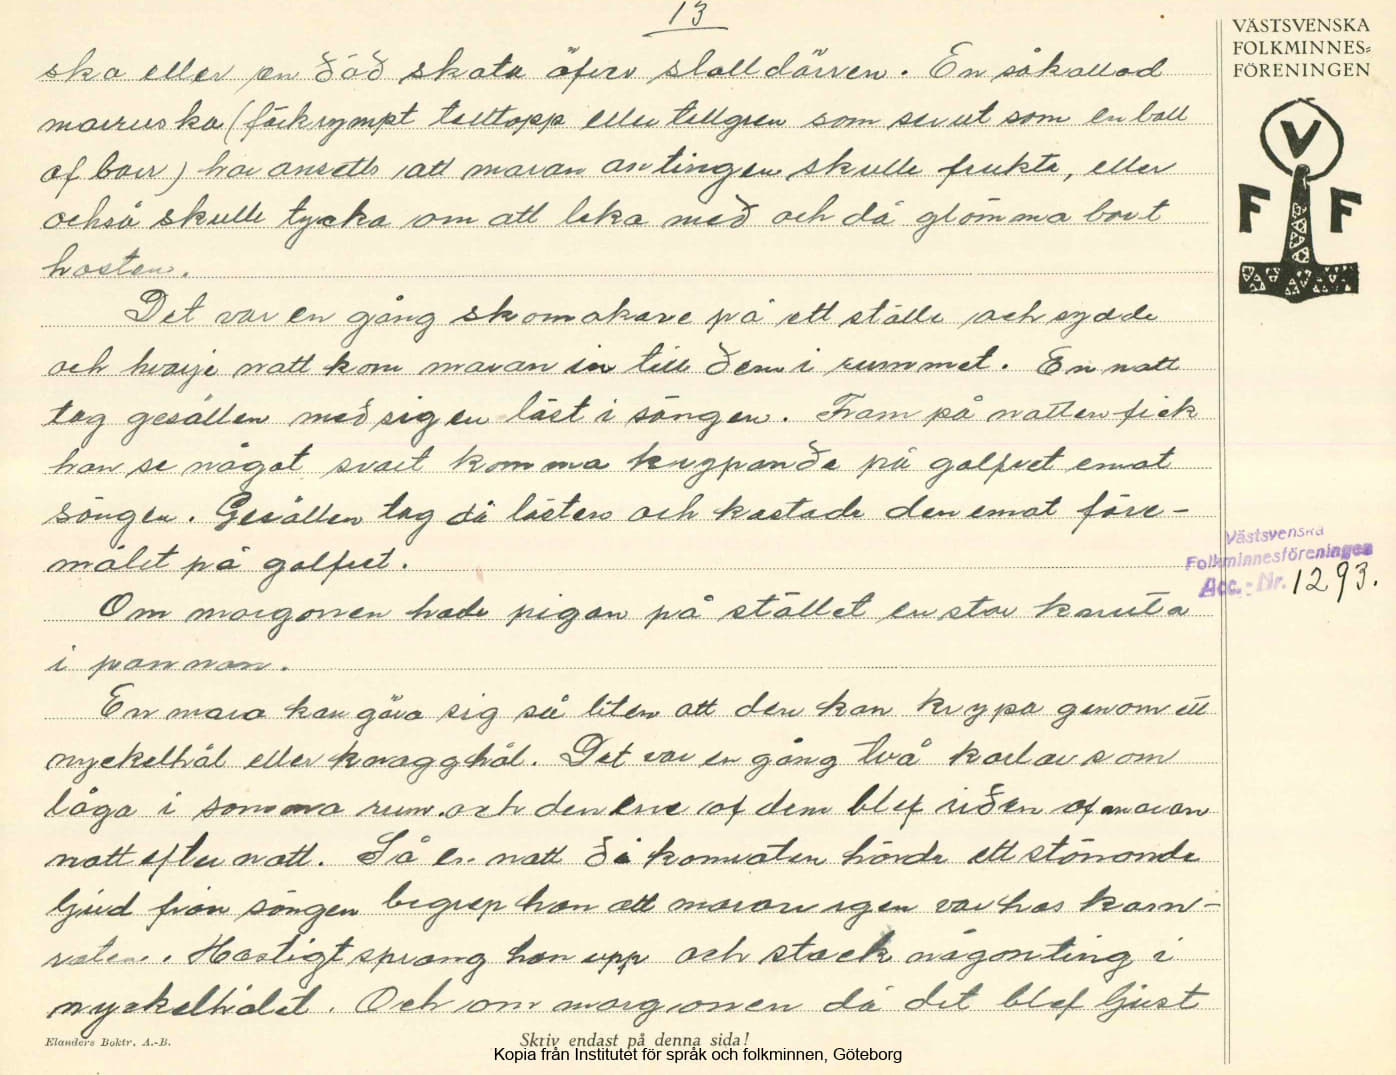 13
VÄSTSVENSKA
FOLKMINNES=
FÖRENINGEN
V
F F
ska eller en död skata öfver stalldörren. En såkallad
marruska (förkrympt talltopp eller tallgren som ser ut som en boll
af barr) har ansetts att maran antingen skulle frukta, eller
också skulle tycka om att leka med och då glömma bort
hästen.
Det var en gång skomakare på ett ställe och sydde
och hvarje natt kom maran in till dem i rummet. En natt
tog gesällen med sig en läst i sängen. Fram på natten fick
han se något svart komma krypande på golfvet emot
sängen. Gesällen tog då lästen och kastade den emot före-
målet på golfvet.
Om morgonen hade pigan på stället en stor knuta
i pannan.
En mara kan göra sig så liten att den kan krypa genom ett
nyckelhål eller knagghål. Det var en gång två karlar som
låga i samma rum och den ene af dem blef riden af maran
natt efter natt. Så en natt då kamraten hörde ett stönande
ljud från sängen begrep han att maran igen var hos kam-
raten. Hastigt sprang han upp och stack någonting i
nyckelhålet. Och om morgonen då det blef ljust
Västsvenska
Folkminnesföreningen
Acc.-Nr. 1293.
Elanders Boktr. A.-B.
Skriv endast på denna sida!
Kopia från Institutet för språk och folkminnen, Göteborg